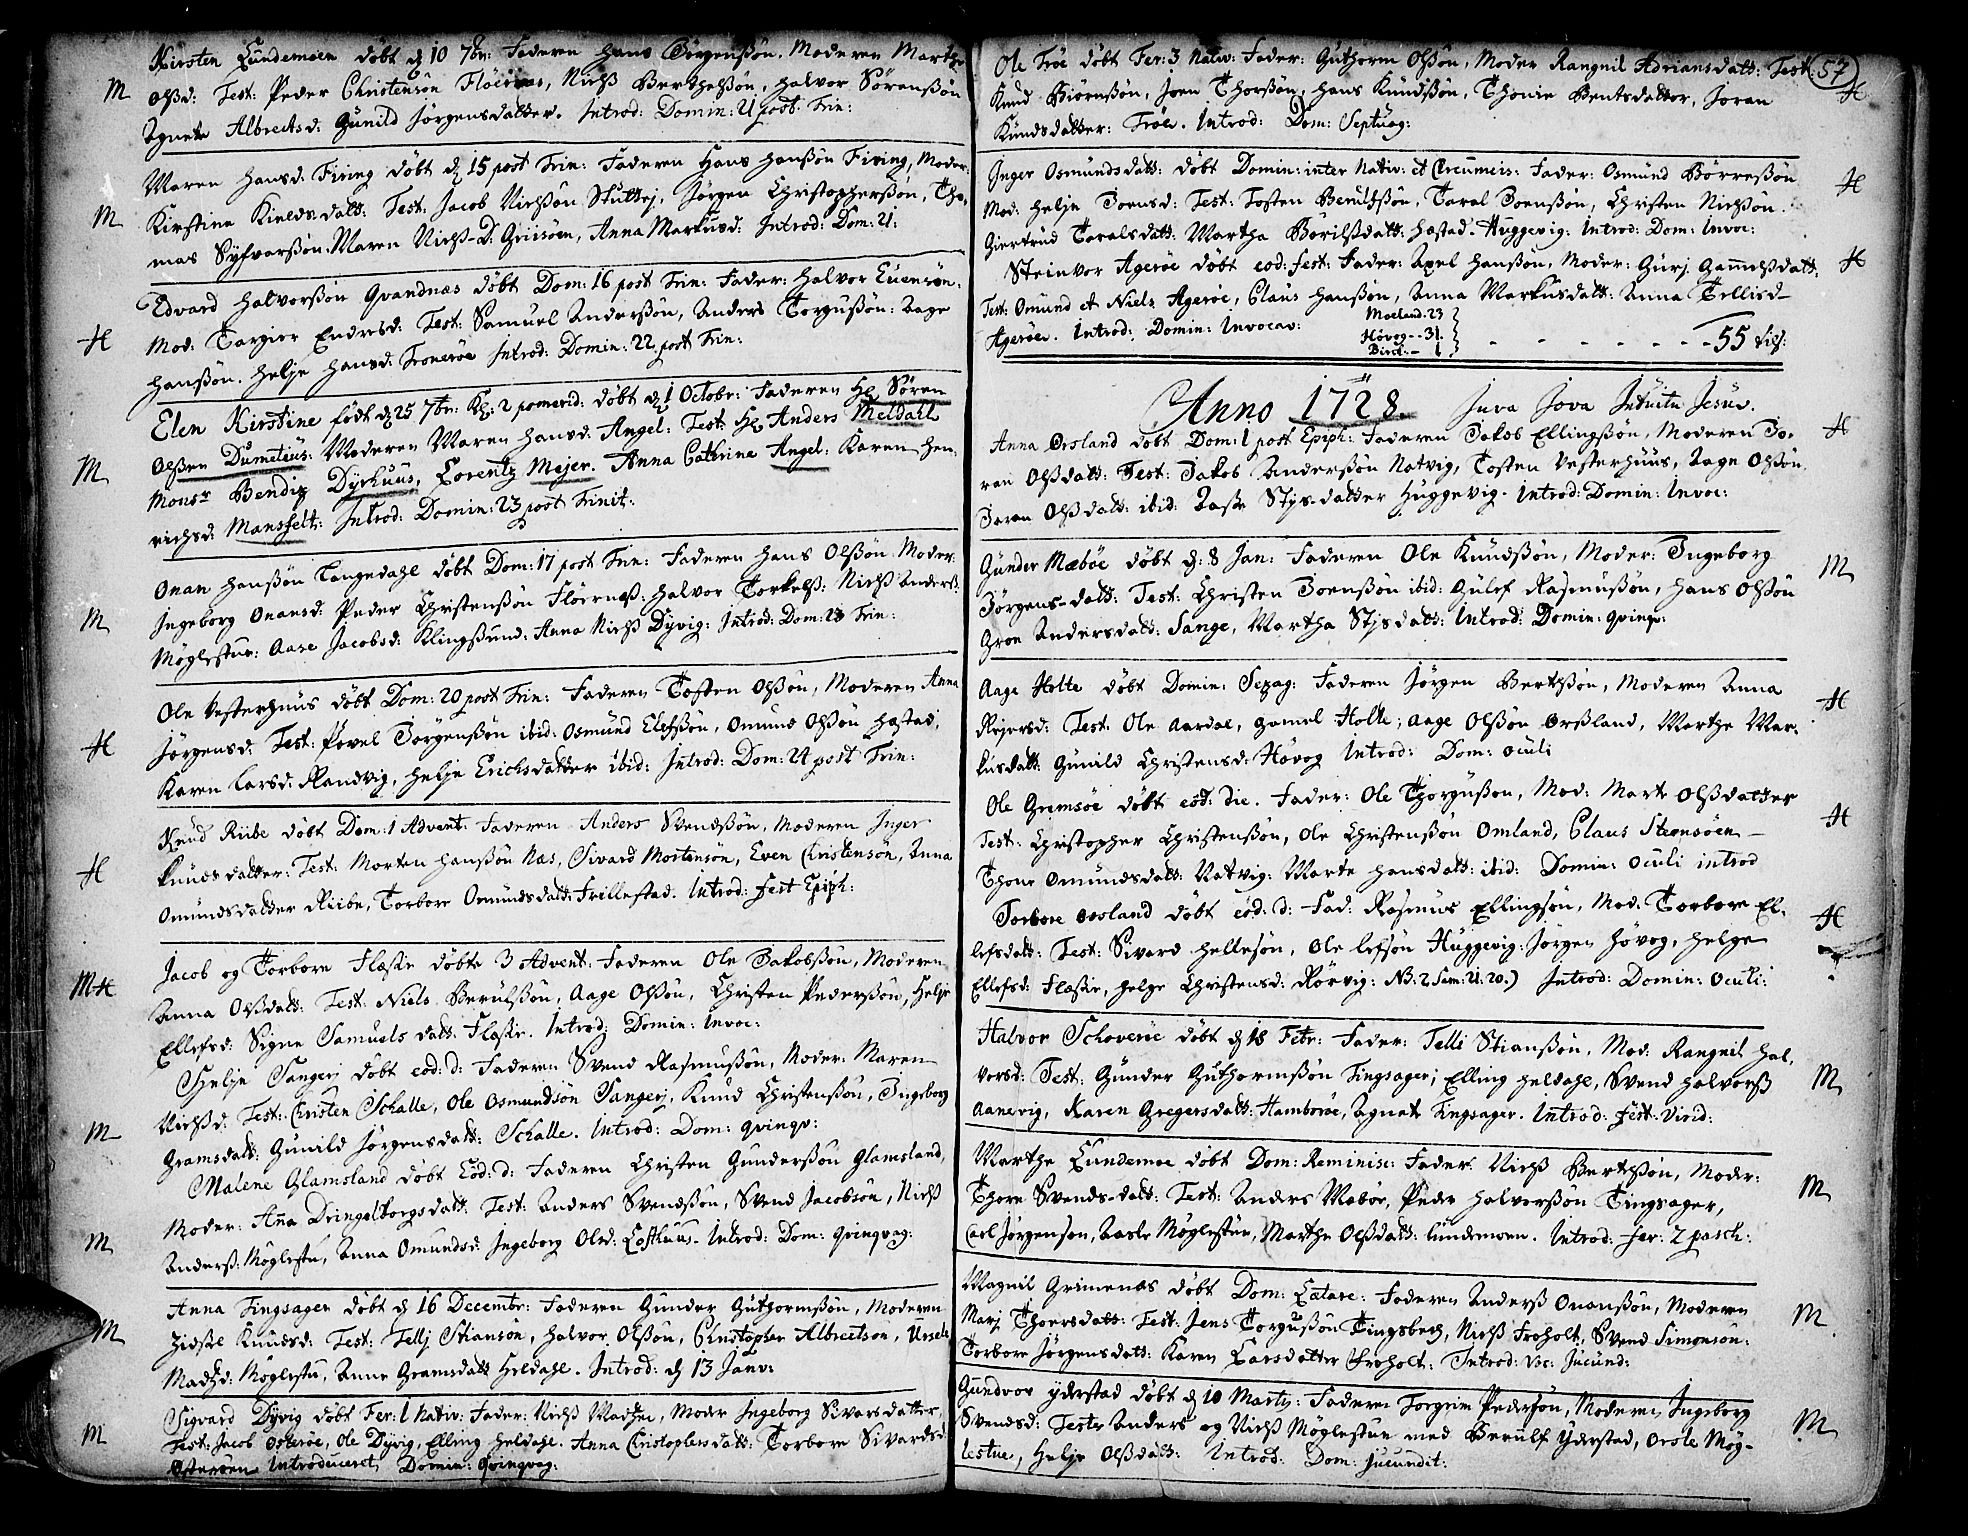 Kirsten Lundemoen döbt d 10 7br: Faderen Hans Börgensön. Moderen Marthe
M
Olßd: Test: Peder Christensön Flöernes, Nichß Berthelsön, Halvor Sörensön
Agnete Albrectsd: Gunild Jörgensdatter. Introd: Domin: 21 post Trin:
Maren Hansd: Fising döbt d 15 post Trin: Faderen Hans Hansön Fising, Moder:
M
Kirstine Kields datt: Test: Jacob Nichsön Stuttej, Jörgen Christophersön, Tho-
mas Syfvarsön: Maren Nichß-D: Griisöen, Anna Markusd: Introd: Dom: 21:
Edvard Halvorsön Qvandnæs döbt Dom: 16 post Trin: Fader: Halvor Euensön.
H
Mod: Targier Endresd: Test: Samuel Andersön, Anders Torgusön: Aage
Hansön. Helje Hansd: Troneröe Introd: Domin: 22 post Trin:
Elen Kirstine födt d 25 7br: Kl: 2 pomerid: döbt d 1 Octobr: Faderen Hr Sören
Olßen Dumetius: Moderen Maren Hansd: Angel: Test: Hr Anders Meldahl
M
Monsr Bendix Dyrhuus, Lorentz Mejer. Anna Cathrine Angel: Karen Hen-
richsd: Mansfelt: Introd: Domin: 23 post Trinit:
Onan Hansön Tangedahl döbt Dom: 17 post Trin: Faderen Hans Olsön Moder:
M
Ingeborg Onansd: Peder Christensön Flöernes: Halvor Torkelß: Nichß Anderß:
Möglestue: Aase Jacobsd: Klingsund: Anna Nichß Dyvig: Introd: Dom: 23 Trin:
Ole Vesterhuus döbt Dom: 20 post Trin: Faderen Tosten Olsön, Moderen Anna
H
Jörgensd: Test: Povel Jörgensön ibid: Osmund Elefsön, Omund Olsön Hæstad,
Karen Larsd: Randvig, Helje Erichsdatter ibid: Introd: Dom: 24 post Trin:
Knud Riibe döbt Dom: 1 Advent: Faderen Anders Svendsön, Moderen Inger
H
Knudsdatter: Test: Morten Hansön Næs, Sivard Mortensön, Even Christensön, Anna
Omundsdatter Riibe, Torbore Omundsdatt: Trillestad. Introd: Fest Epiph:
Jacob og Torbore Flaskie döbte 3 Advent: Faderen Ole Jakobsön, Moderen
M H
Anna Olßdatt: Test: Niels Berulsön, Aage Olsön, Christen Pedersön, Helje
Ellefsd: Signe Samuels datt: Flaskie. Introd: Domin: Invoc:
Helje Sangerj döbt eod: d: Faderen Svend Rasmusön, Moder: Maren
Nichßd: Test: Christen Schalle, Ole Osmundsön Sangerj, Knud Christensön, Ingeborg
M
Gramsdatt: Gunild Jörgensdatt: Schalle. Introd: Dom: qvinqv:
Malene Glamsland döbt Eod: d: Faderen Christen Gundersön Glamsland,
Moder: Aña Dringelborgsdatt: Test: Anders Svendsön, Svend Jacobsön, Nichß
M
Anderß: Möglestu, Anna Omundsd: Ingeborg Olsd: Losthuus. Introd: Dom: qvinqvag:
Anna Tingsager döbt d 16 Decembr: Faderen Gunder Guthormsön, Moderen
M
Zidsel Knudsd: Test: Tellj Stiansön, Halvor Olsön, Christopher Albretson, Ursele
Madtzd: Möglestu, Anne Gramsdatt Heldahl. Introd: d 13 Janv:
Sigvard Dyvig döbt Fer: 1 Nativ: Fader: Nichß Madtzen, Moder Ingeborg Sivarsdatter,
M
Test: Jacob Osteröe, Ole Dyvig, Elling Heldahl. Anna Christophersdatt: Torbore Sivardsd:
Osteröen Introduceret Domin: Qvinqvag:
Ole Tröe döbt Fer: 3 Nativ: Fader: Guthorm Olsön, Moder Rangnil Adriansdatt: Test:
57
H
Knud Biörnsön, Joen Thorsön, Hans Knudsön, Thonie Bentsdatter, Joran
Knudsdatter: Tröe. Introd: Dom: Septuag:
Inger Osmundsdatt: döbt Domin: inter Nativ: et Circumcis: Fader: Osmund Börresön
H
Mod: Helje Joensd: Test: Tosten Beruldsön, Taral Joensön, Christen Nichson.
Giertrud Taralsdatt: Martha Börilsdatt: Hæstad. Huggevig: Introd: Dom: Invoc:
Steinvor Ageröe döbt eod: fest: Fader: Axel Hansön, Moder: Gurj Gamelsdatt:
H
Test: Omund et Niels Ageröe, Claus Hansön, Anna Markusdatt: Anna Tellisd-
Ageröe. Introd: Domin: Invocav:
Moeland: 23
Hövog - - 31.
Birch: - 1
55 
Anno 1728. Juva Jova Intuitu Jesu.
Anna Örsland döbt Dom: 1 post Epiph: Faderen Jakob Ellingsön, Moderen Jo-
H
ran Olßdatt: Test: Jakob Andersön Natvig, Tosten Vesterhuus, Aage Olsön
Joran Olßdatt: ibid: Aase Stysdatter Huggevig. Introd: Domin: Invoc:
Gunder Mæböe döbt d: 8 Jan: Faderen Ole Knudsön, Moder: Ingeborg
M
Jörgens-datt: Test: Christen Joensön ibid: Gulef Rasmusön, Hans Olsön
Groe Andersdatt: Sange, Martha Stysdatt: Introd: Domin: qvinqv:
Aage Holte döbt Domin: Sexag: Faderen Jörgen Bertsön, Moderen Anna
H
Rejersd: Test: Ole Aardal, Gamel Holte, Aage Olsön Örsland, Marthe Mar-
kusdatt: Gunild Christensd: Hövog Introd: Dom: Oculi
Ole Grimsöe döbt eod: die. Fader: Ole Thorgusön, Mod: Marte Olsdatter
H
Test: Christopher Christensön, Ole Christensön Omland, Claus Steensöen
Thore Omundsdatt: Natvig: Marte Hansdatt: ibid: Domin: Oculi introd
Torbore Örsland döbt eod: d: Fad: Rasmus Ellingsön, Mod: Torbore El-
H
lefsdatt: Test: Sivard Hellesön, Ole Lefsön Huggevig: Jörgen Hövog, Helge
Ellefsd: Flaskie, Helge Christensd: Rörvig: NB 2 Sam: 21: 20.) Introd: Domin: Oculi:
Halvor Schoveröe döbt d 18 Febr: Fader: Telli Stiansön, Mod: Rangnil Hal-
vorsd: Test: Gunder Guthormsön Tingsager; Elling Heldahl, Svend Halvorß
M
Aanevig, Karen Gregersdatt: Hamboröe, Agnet Tingsager. Introd: Fest: Virid:
Marthe Lundemoe döbt Dom: Reminisc: Fader: Nichß Bertsön, Moder:
M
Thore Svends-datt: Test: Anders Mæböe, Peder Halvorsön Tingsager,
Carl Jörgensön, Aasle Möglestue, Marthe Olßdatt: Lundemoen. Introd: fer: 2 pasch:
Magnil Grimenæs döbt Dom: Lætare: Faderen Anderß Onansön, Moderen
M
Marj Thoersdatt: Test: Jens Torgusön Tingsbech, Nichß Froholt, Svend Simonsön:
Torbore Jörgensdatt: Karen Larsdatter Froholt: Introd: Dom: Jucund:
Gundvor Yderstad döbt d 10 Martij: Faderen Torgrim Pedersön, Moderen Ingeborg
M
Svendsd: Teste Anders og Nichß Möglestue med Berulf Yderstad, Orsle Mög-
lestue, Helje Olßdatt: Introd: Dom: Jucundit: